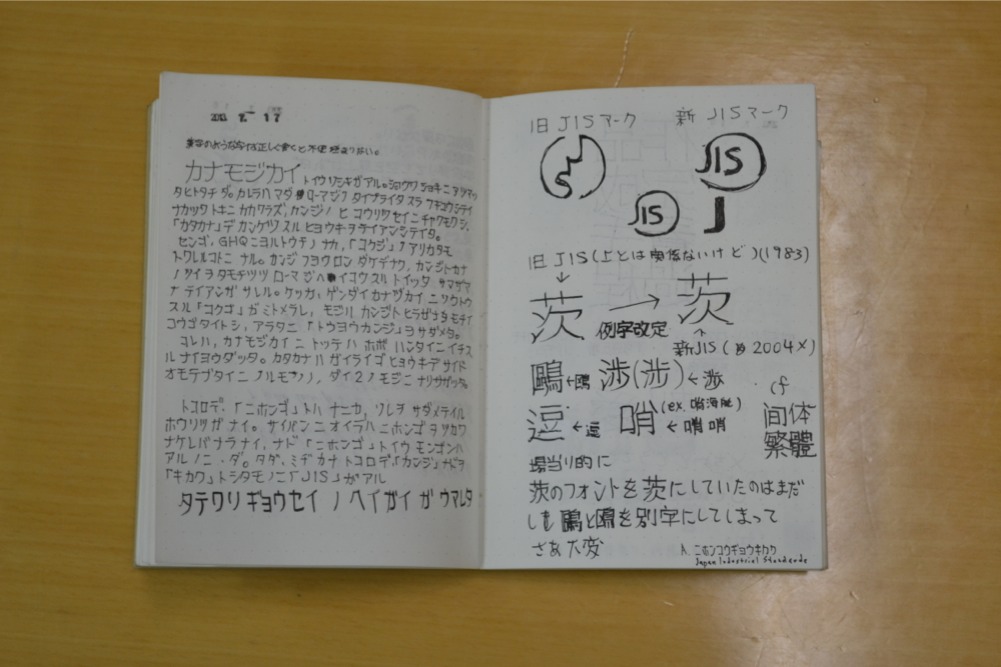 カナモジカイ トイウソシキガ アル。ショウワ ショキニ アツマッ
タヒトタチ ダ。カレラハ マダ ローマジノ タイプライタ スラ フキュウシテイ
ナカッタ トキニ カカワラズ、カンジノ ヒ コウリツセイニ チャクモクシ、
「カタカナ」デ カンケツ スル ヒョウキ ヲ テイアンシテイタ。
センゴ、GHQ ニヨルトウチノ ナカ、「コクジ」ノ アリカタモ
トワレルコトニ ナル。カンジ フヨウロン ダケデナク、カンジトカナ
ノ ツイ ヲ タモチツツ ローマジヘ イコウスル トイッタ サマザマ
ナ テイアンガ サレル。ケッカ、ゲンダイカナヅカイ ニ ソクトウ
スル「コクゴ」ガ ミトメラレ、モジハ カンジト ヒラガナヲ モチイ
コウゴタイトシ、アラタニ 「トウヨウカンジ」ヲ サダメタ。
コレハ、カナモジカイ ニ トッテハ ホボ ハンタイニ イチス
ル ナイヨウダッタ。カタカナハ ガイライゴ ヒョウキデ サイド
オモテブタイニ ノルモノノ、ダイ2ノ モジニ ナリサガッタ。
トコロデ、「ニホンゴ」トハ ナニカ、ソレヲ サダメテイル
ホウリツガ ナイ。サイバン ニ オイテハ ニホンゴ ヲ ツカワ
ナケレバナラ ナイ、ナド 「ニホンゴ」トイウ モンゴンハ
アルノニ・ダ。タダ、ミヂカナ トコロデ「カンジ」ナドヲ
「キカク」トシタモノニ「JIS」ガ アル
タテワリ ギョウセイ ノ ヘイガイ ガ ウマレタ
旧 JISマーク
新 JISマーク
JIS
JIS
J
旧 JIS(上とは関係ないけど)(1983)
茨 → 茨
例字改定
新JIS(約2004×)
鷗←鴎 渉(渉)←渉
逗←逗 哨(ex.哨海艇)←哨 哨
cf
间体
繁體
場当り的に
茨のフォントを茨にしていたのはまだ
しも 鷗と鴎を別字にしてしまって
さあ大変
ニホンコウギョウキカク
Japan Industrial Standerde